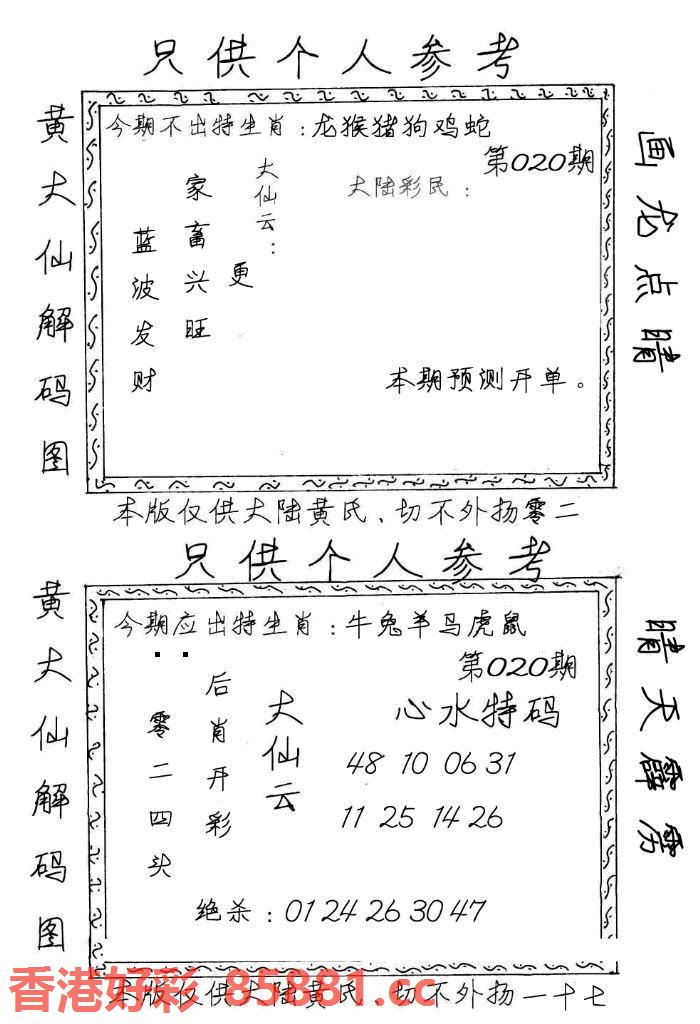 只供个人参考
黄大仙解码图
今期不出特生肖：龙猴猪狗鸡蛇
第020期
大陆彩民：
大仙云：
更
家畜兴旺
蓝波发财
本期预测开单。
画龙点晴
本版仅供大陆黄氏、切不外扬零二
只供个人参考
黄大仙解码图
今期应出特生肖：牛兔羊马虎鼠
第020期
心水特码
大仙云
后肖开彩
零二四头
48 10 06 31
11 25 14 26
绝杀：01 24 26 30 47
晴天霹雳
本版仅供大陆黄氏、切不外扬一十七
香港好彩 85881.cc